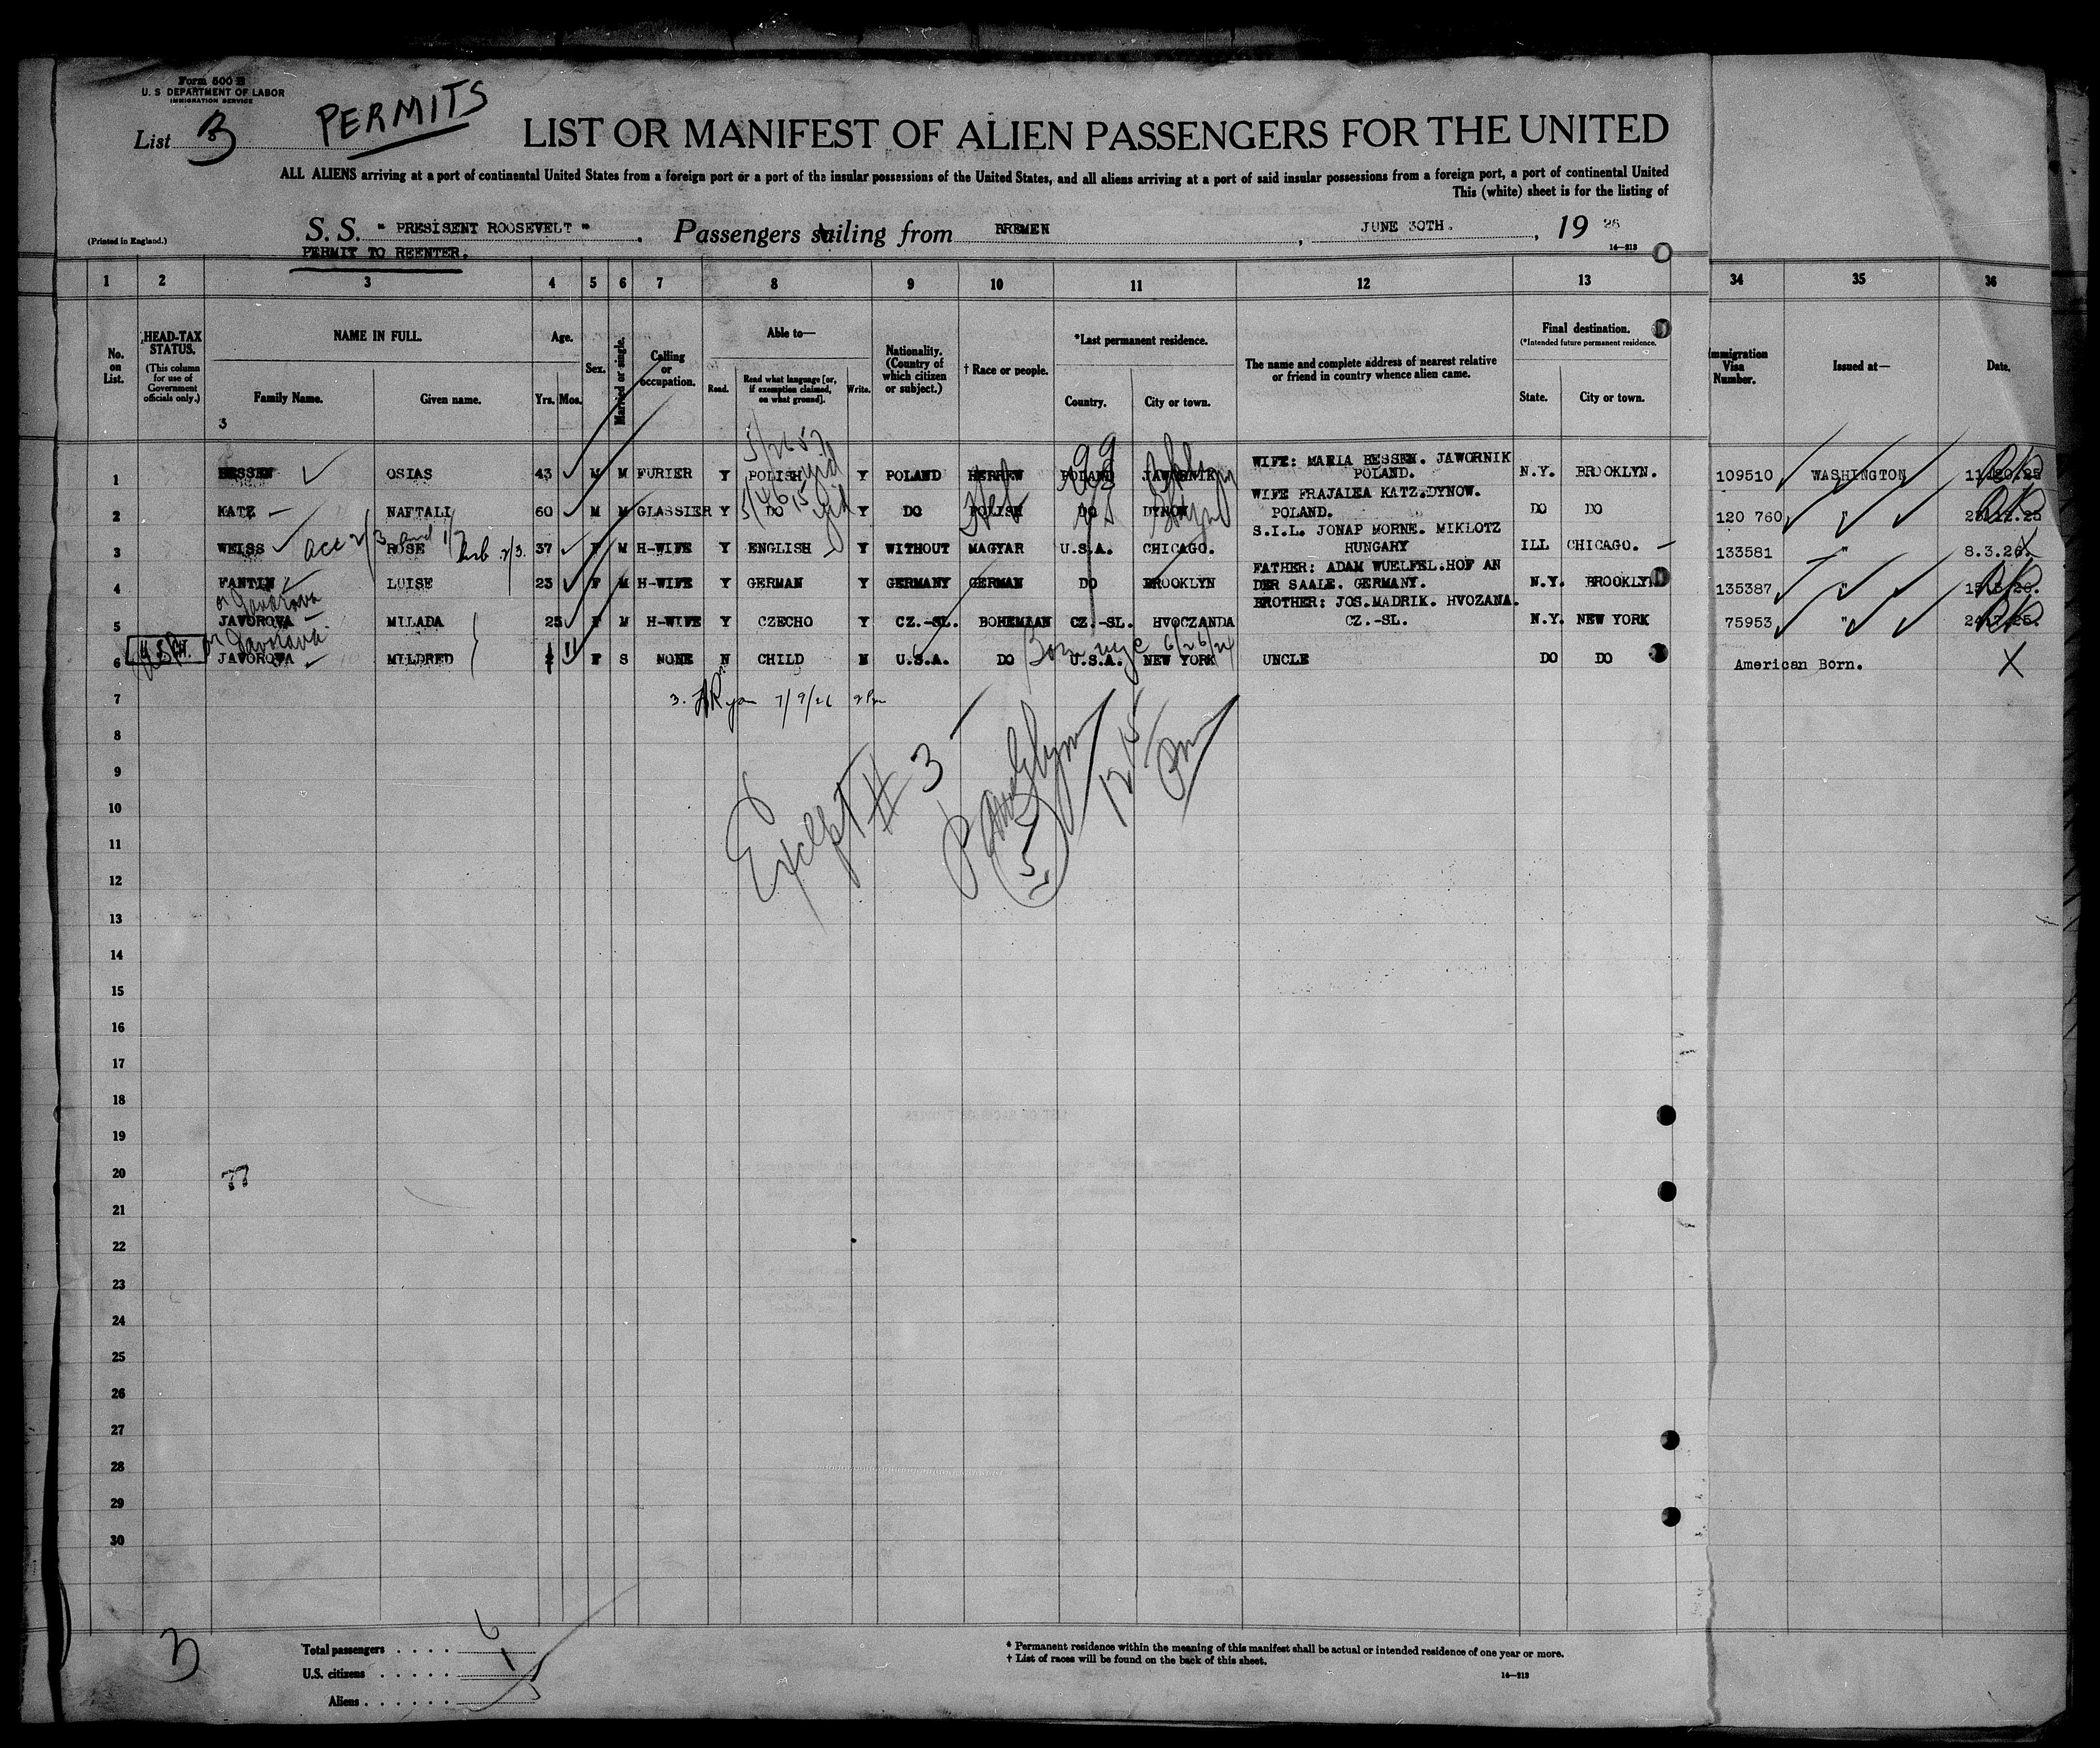 Form 500 B
U. S DEPARTMENT OF LABOR
IMMIGRATION SERVICE
List B
PERMITS
LIST OR MANIFEST OF ALIEN PASSENGERS FOR THE UNITED
ALL ALIENS arriving at a port of continental United States from a foreign port or a port of the insular possessions of the United States, and all aliens arriving at a port of said insular possessions from a foreign port, a port of continental United
This (white) sheet is for the listing of
(Printed in England.)
S. S. " PRESISENT ROOSEVELT " , Passengers sailing from BREMEN , JUNE 30TH. , 19 26
PERMIT TO REENTER.
14—213
1 2 3 4 5 6 7 8 9 10 11 12 13 34 35 36
No. on List.
HEAD-TAX STATUS. (This column for use of Government officials only.)
NAME IN FULL.
Family Name. Given name.
3
Age. Yrs. Mos.
Sex.
Married or single.
Calling or occupation.
Able to—
Read. Read what language [or, if exemption claimed, on what ground]. Write.
Nationality. (Country of which citizen or subject.)
† Race or people.
*Last permanent residence.
Country. City or town.
The name and complete address of nearest relative or friend in country whence alien came.
Final destination.
(*Intended future permanent residence.
State. City or town.
Immigration Visa Number.
Issued at—
Date.
1 BESSEN OSIAS 43 M M FURIER Y POLISH Y POLAND HEBREW POLAND JAWORNIK WIFE: MARIA BESSEN. JAWORNIK POLAND. N.Y. BROOKLYN. 109510 WASHINGTON
2 KATZ NAFTALI 60 M M GLASSIER Y DO Y DO POLISH DO DYNOW WIFE FRAJALEA KATZ.DYNOW. POLAND. DO DO 120 760 "
3 WEISS ROSE 37 F M H-WIFE Y ENGLISH Y WITHOUT MAGYAR U.S.A. CHICAGO. S.I.L. JONAP MORNE. MIKLOTZ HUNGARY ILL CHICAGO. 133581 " 8.3.26.
4 FANTIN LUISE 23 F M H-WIFE Y GERMAN Y GERMANY GERMAN DO BROOKLYN FATHER: ADAM WUELFEL.HOF AN DER SAALE. GERMANY. N.Y. BROOKLYN 135387 "
or Javorava
5 JAVOROVA MILADA 25 F M H-WIFE Y CZECHO Y CZ.-SL. BOHEMIAN CZ.-SL. HVOCZANDA BROTHER: JOS.MADRIK. HVOZANA. CZ.-SL. N.Y. NEW YORK 75953 "
or Javorava
Born 6/26/24
6 JAVOROVA MILDRED 2 F S NONE N CHILD N U.S.A. DO U.S.A. NEW YORK UNCLE DO DO American Born. X
7
3. 7/9/26
8
Except # 3
9
10
11
12
13
14
15
16
17
18
19
20
21
22
23
24
25
26
27
28
29
30
Total passengers . . . . 6
U.S. citizens . . . . . 1
Aliens . . . . . . 5
* Permanent residence within the meaning of this manifest shall be actual or intended residence of one year or more.
† List of races will be found on the back of this sheet.
14—213